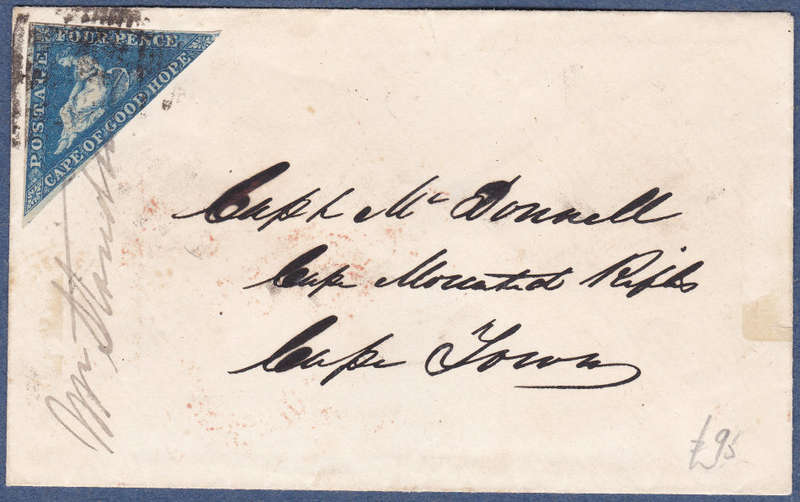 POSTAGE
FOUR PENCE
CAPE OF GOOD HOPE
Capt Mc Donnell
Cape Mounted Rifles
Cape Town
£95